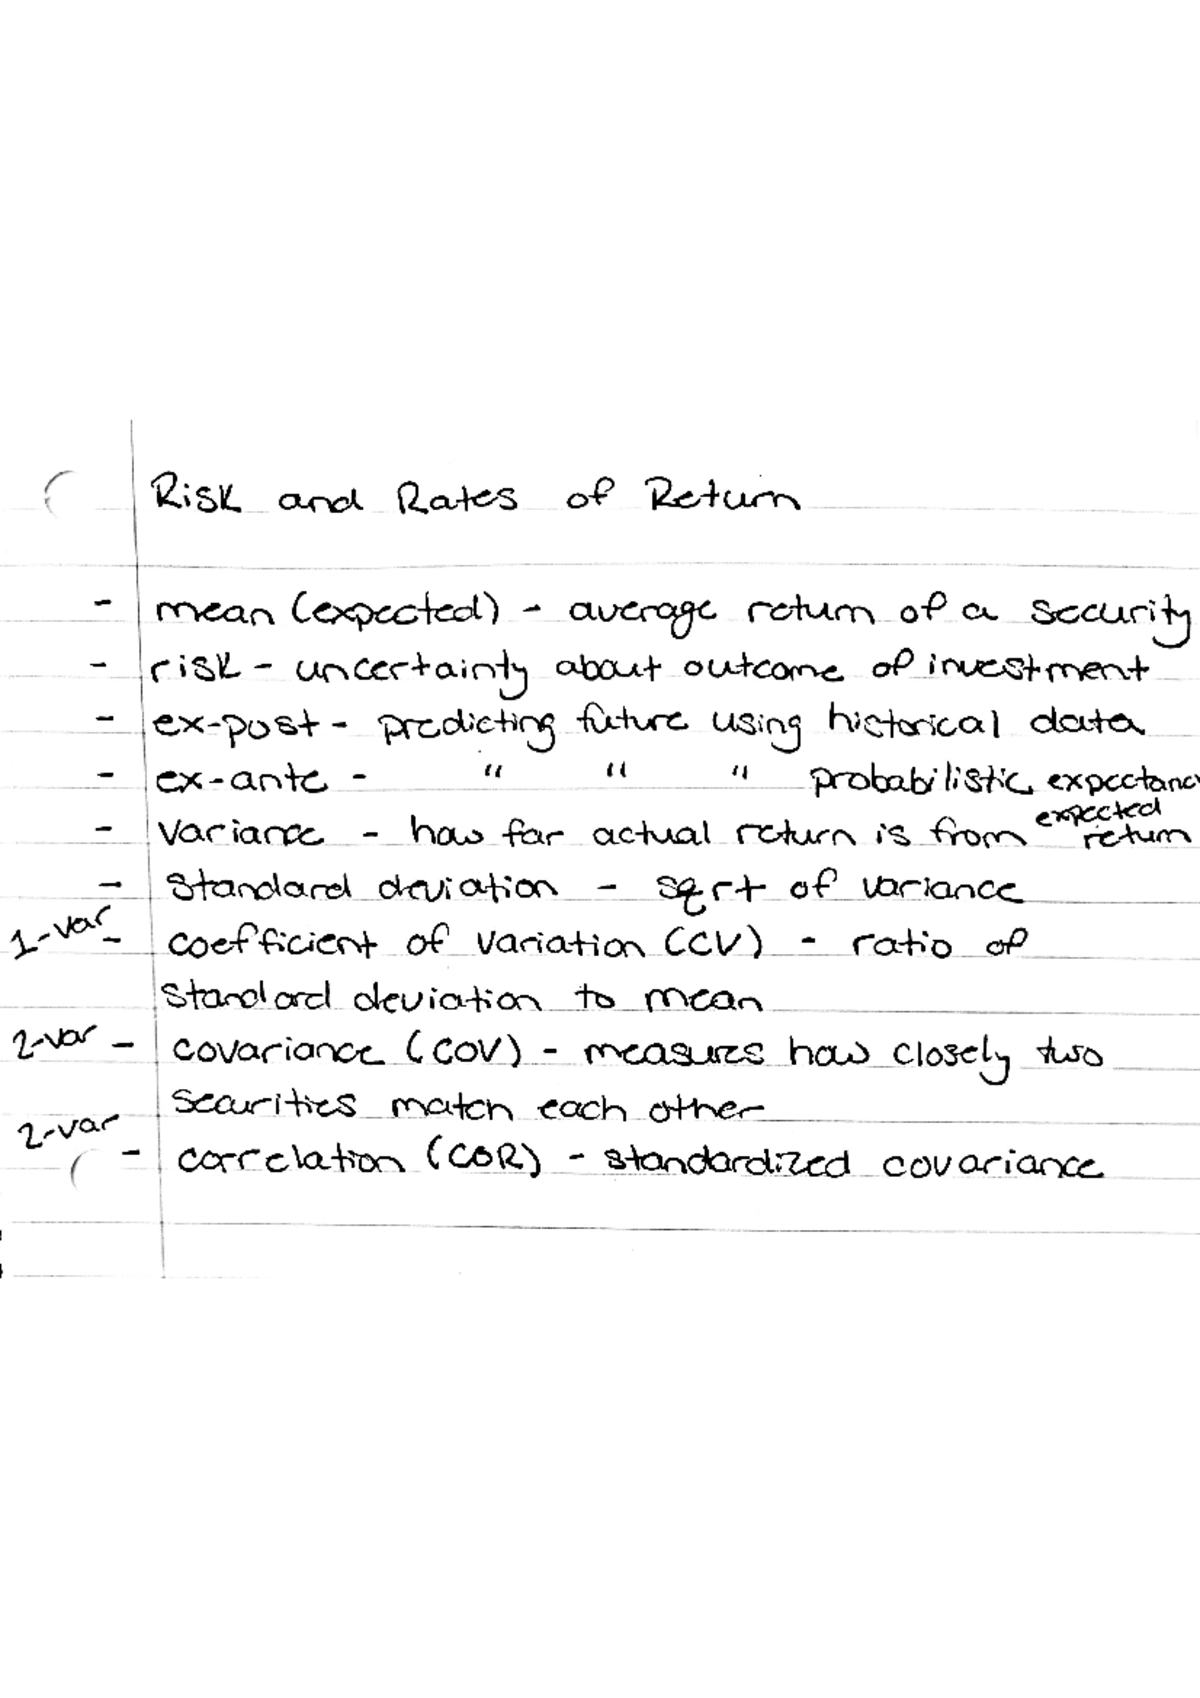 Risk and Rates of Return
- mean (expected) - average return of a security
- risk - uncertainty about outcome of investment
- ex-post - predicting future using historical data
- ex-ante - " " " probabilistic expectanc
- variance - how far actual return is from expected return
- standard deviation - sqrt of variance
1-var - coefficient of variation (CV) - ratio of
standard deviation to mean
2-var - covariance (COV) - measures how closely two
securities match each other
2-var - correlation (COR) - standardized covariance